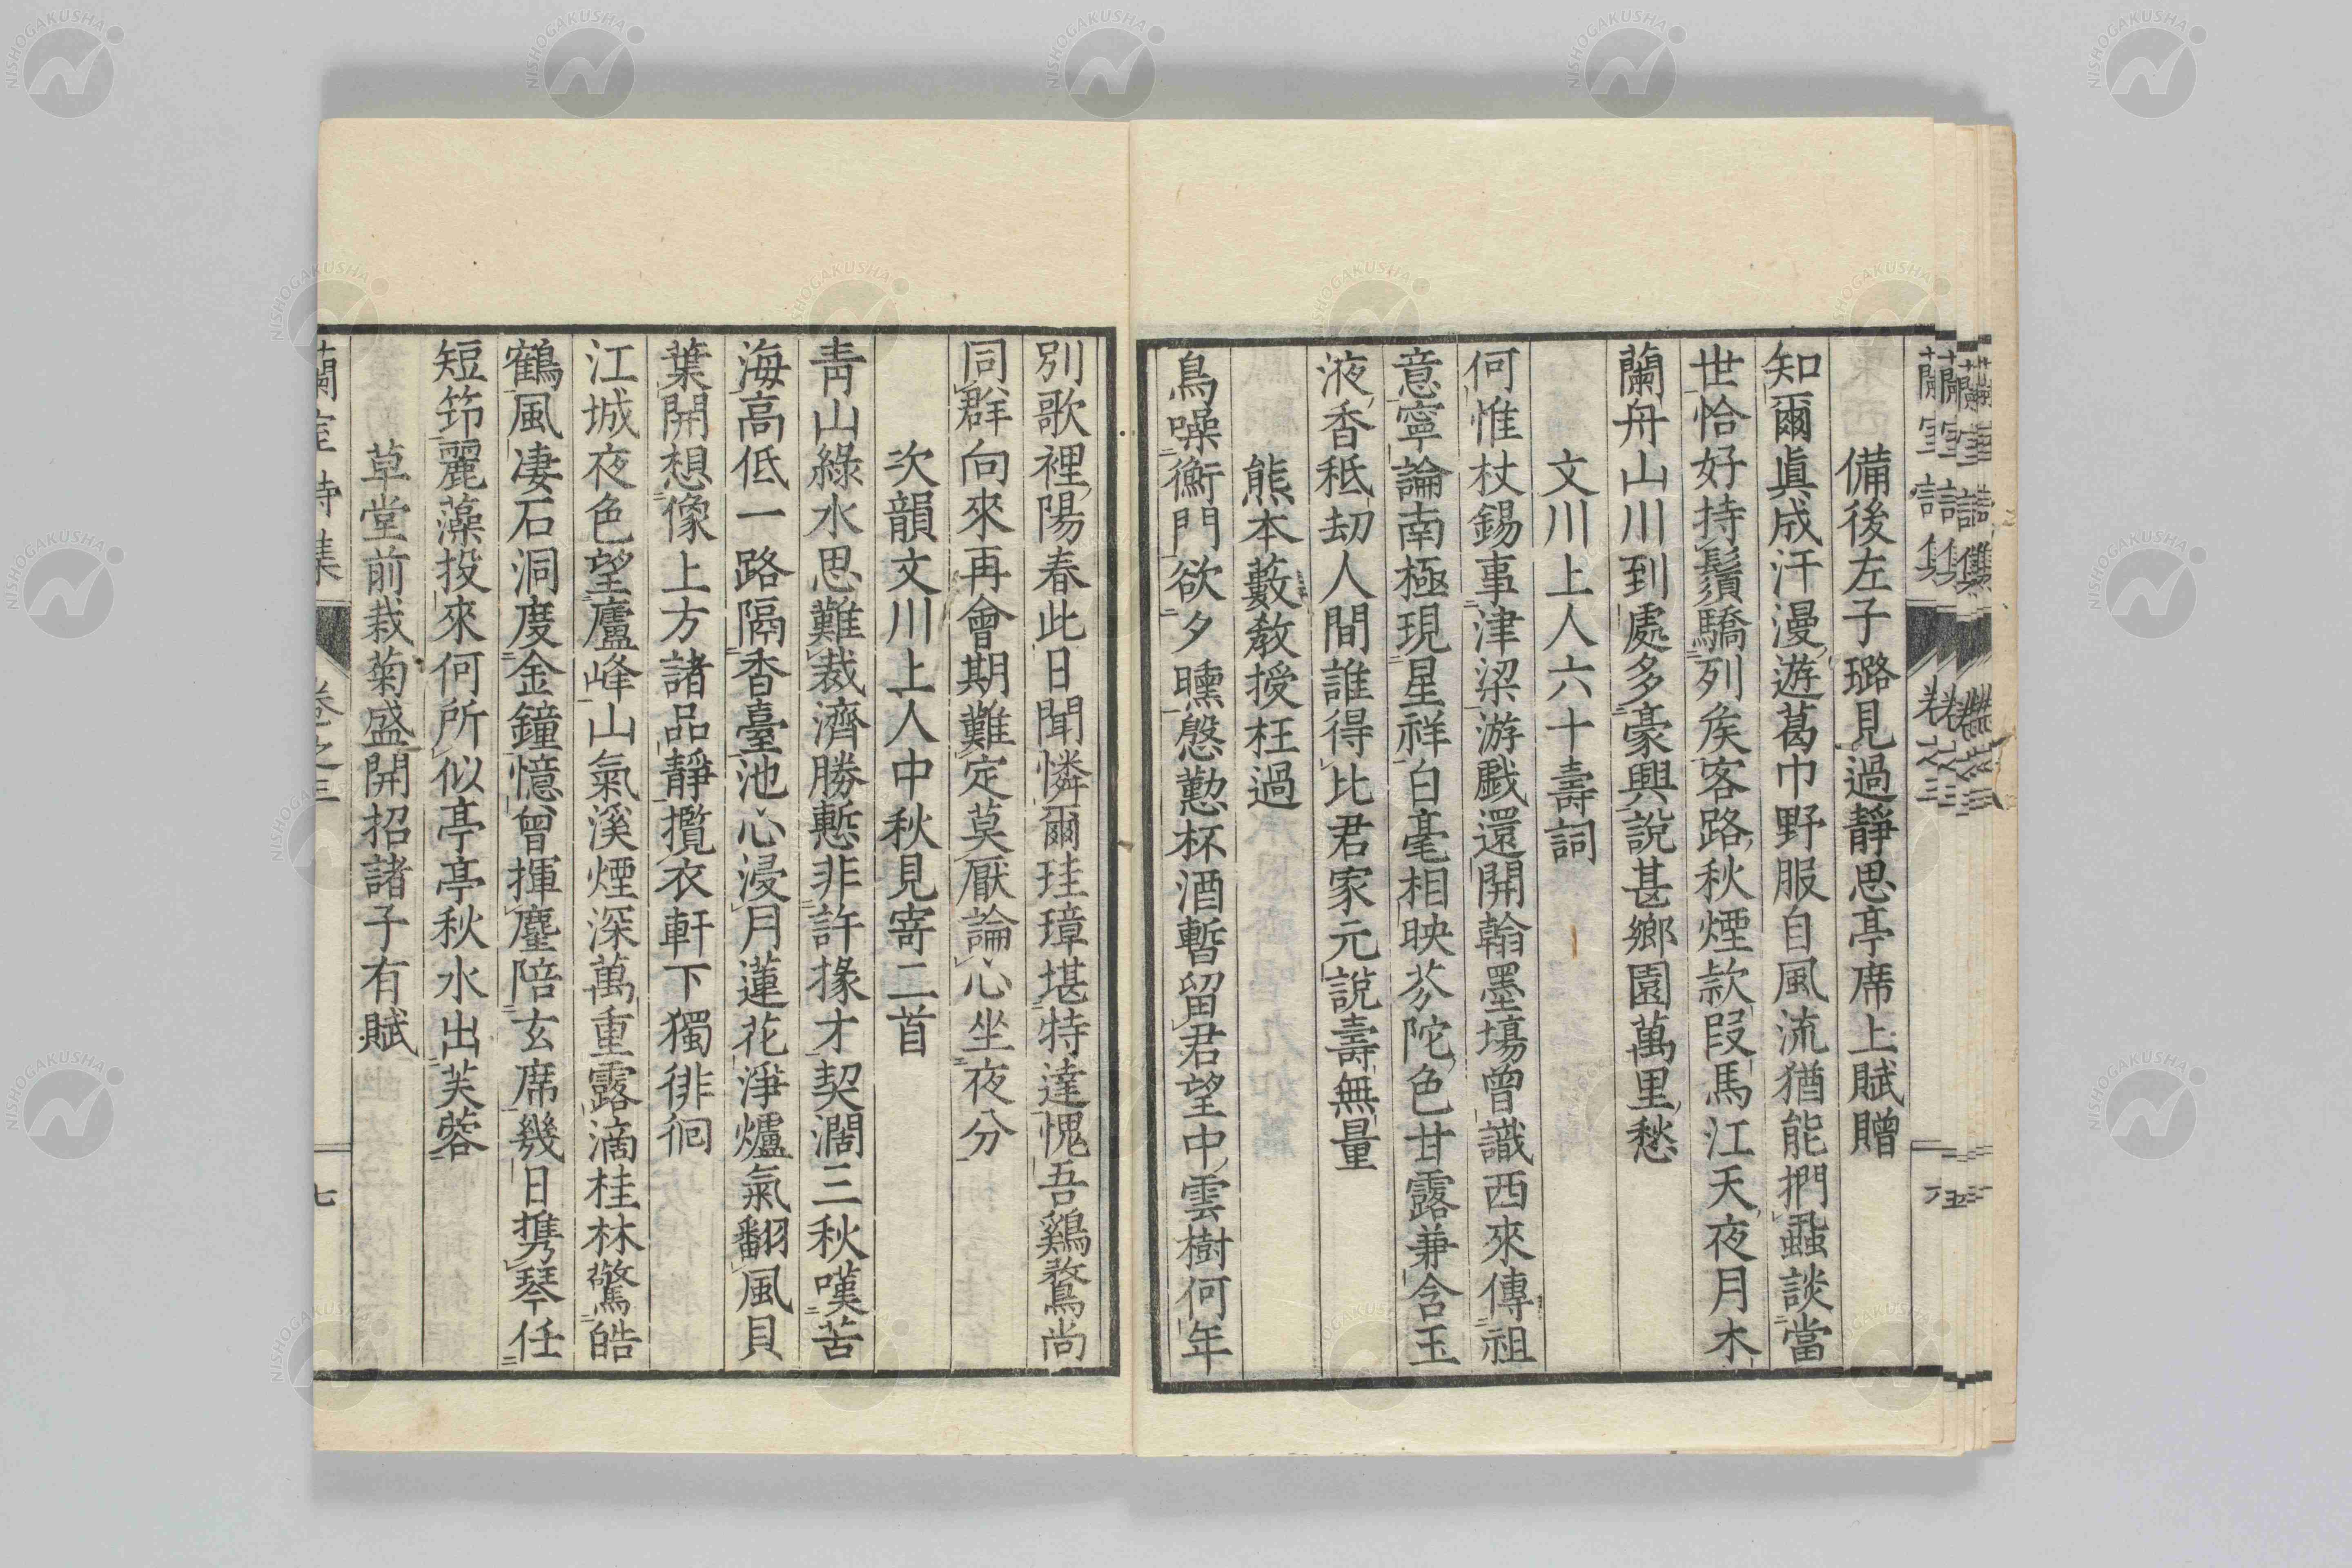 備後左子璐見過靜思亭席上賦贈
知爾眞成汗漫遊葛巾野服自風流猶能捫蝨談當
世恰好持鬚驕列矦客路秋煙款段馬江天夜月木
蘭舟山川到處多豪興說甚鄉園萬里愁
文川上人六十壽詞
何惟杖錫事津梁游戲還開翰墨塲曾識西來傳祖
意寧論南極現星祥白毫相映芬陀色甘露兼含玉
液香秪劫人間誰得比君家元說壽無量
熊本藪敎授枉過
鳥噪衡門欲夕曛慇懃杯酒暫留君望中雲樹何年
別歌裡陽春此日聞憐爾珪璋堪特達愧吾鷄鶩尚
同群向來再會期難定莫厭論心坐夜分
次韻文川上人中秋見寄二首
靑山綠水思難裁濟勝慙非許掾才契濶三秋嘆苦
海高低一路隔香臺池心浸月蓮花淨爐氣翻風貝
葉開想像上方諸品靜攬衣軒下獨徘徊
江城夜色望廬峰山氣溪煙深萬重露滴桂林驚皓
鶴風凄石洞度金鐘憶曾揮麈陪玄席幾日携琴任
短笻麗藻投來何所似亭亭秋水出芙蓉
草堂前栽菊盛開招諸子有賦
蘭室詩集 卷之三 七
蘭室詩集 卷之三 六
NISHOGAKUSHA